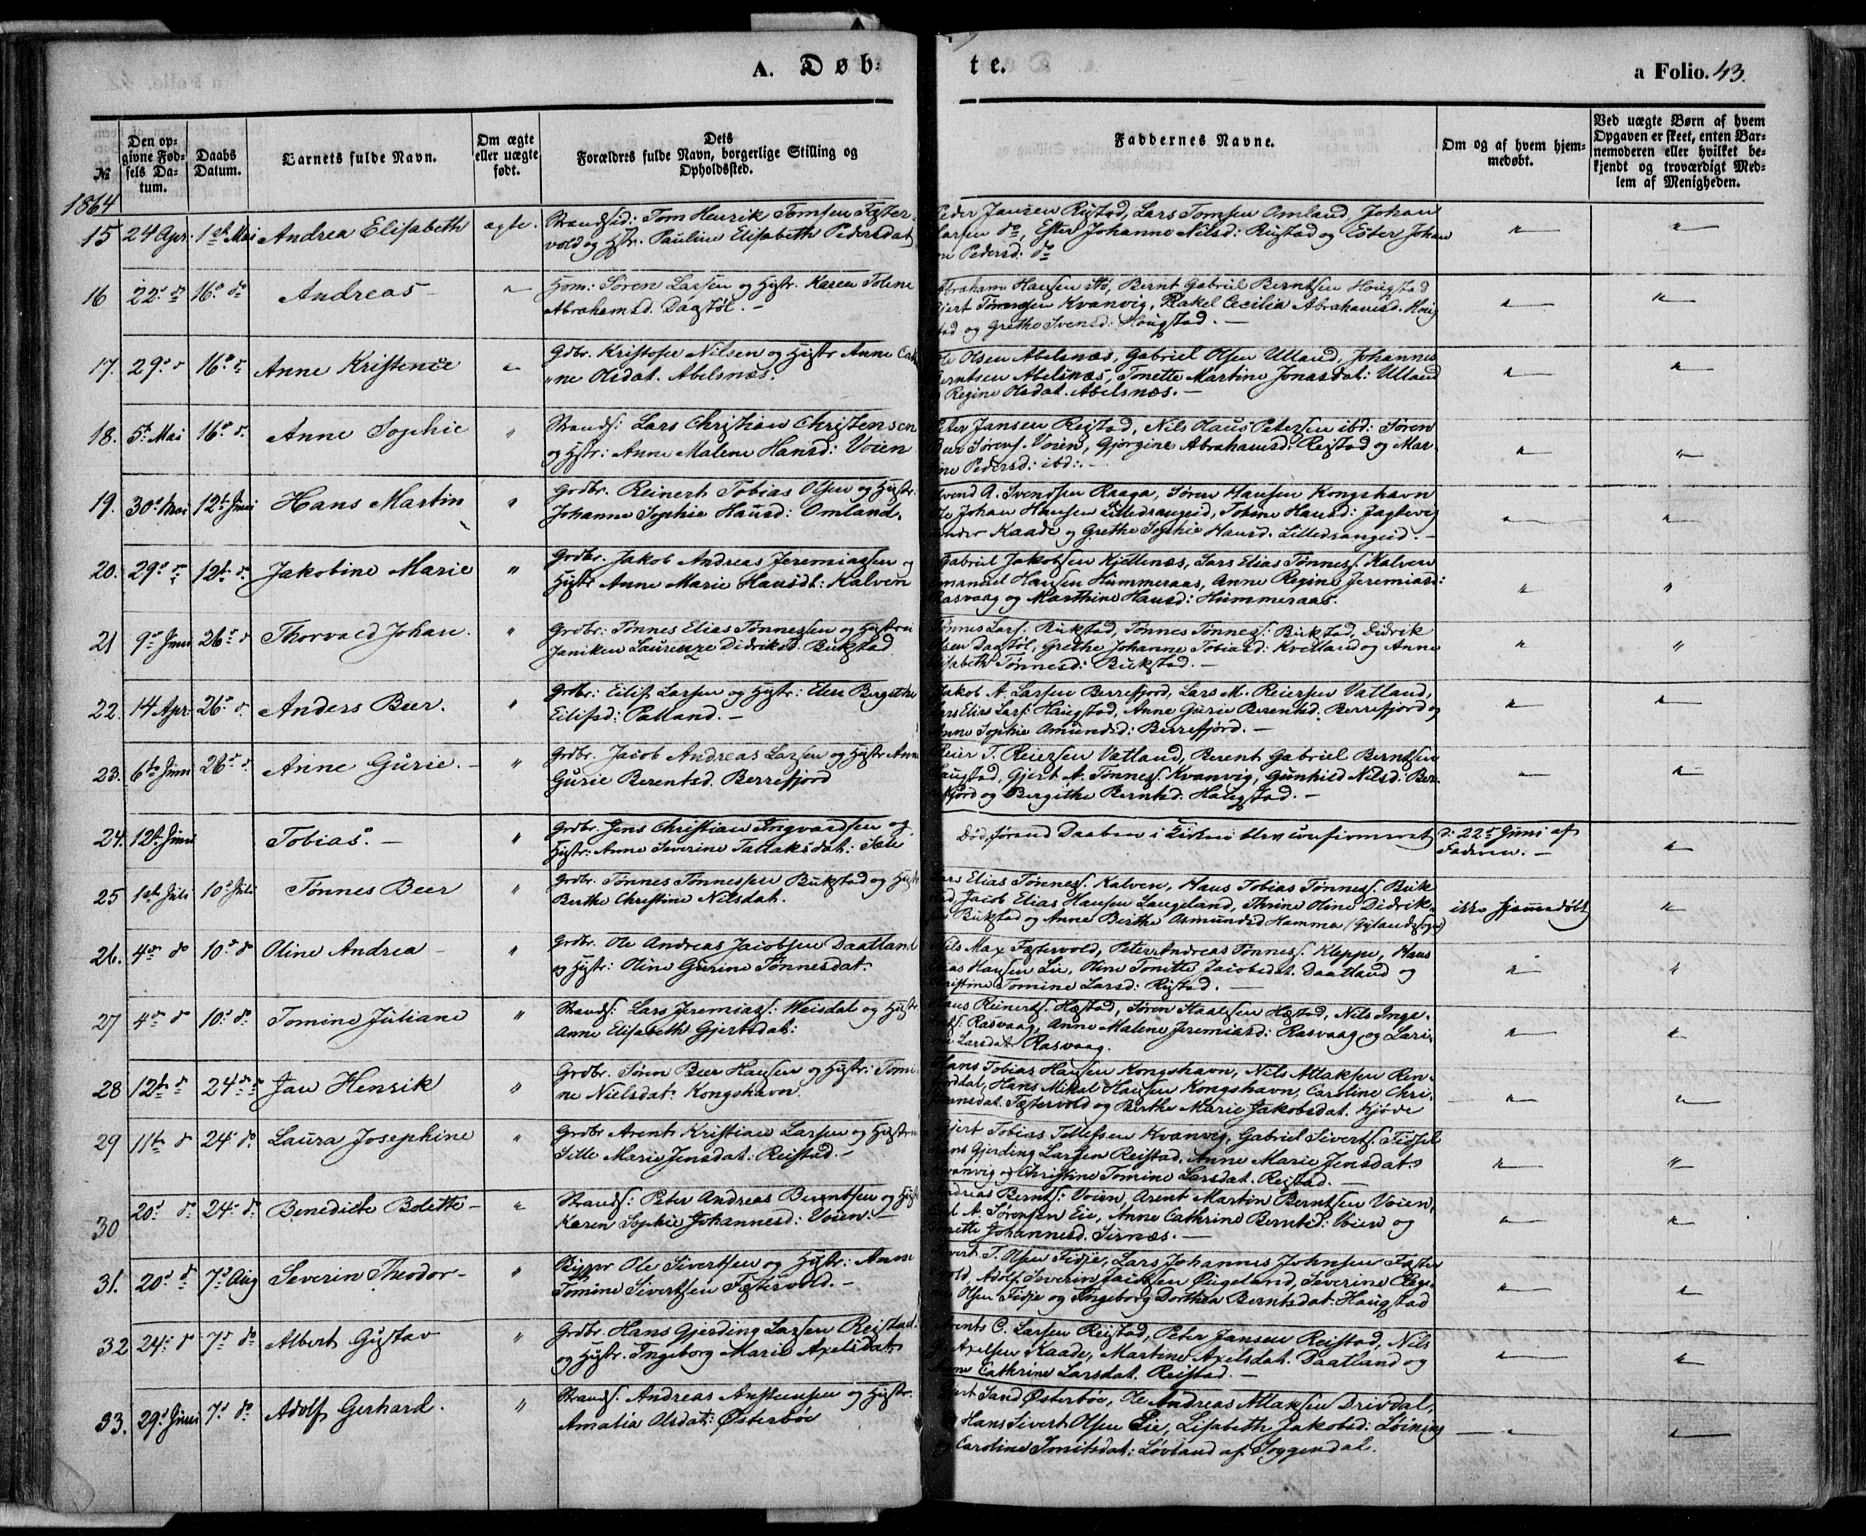 A. Døb-te.
a Folio. 43.
№
Den opgivne Fødsels Datum.
Daabs Datum.
Barnets fulde Navn.
Om ægte eller uægte født.
Dets Forældres fulde Navn, borgerlige Stilling og Opholdssted.
Faddernes Navne.
Om og af hvem hjemmedøbt.
Ved uægte Børn af hvem Opgaven er skeet, enten Barnemoderen eller hvilket bekjendt og troværdigt Medlem af Menigheden.
1864
15 24 Apr. 1st Mai Andrea Elisabeth ægte. Strandsid: Tom Henrik Tomsen Fæster-
vold og Hstr: Pauline Elisabeth Pedersdat
Peder Jansen Reistad, Lars Tomsen Omland, Johan
Larsen do, Johanne Nilsd: Reistad og Ester Johan
ne Pedersd: do
16 22 do 16 do Andreas
Søren Larsen og Hgstr. Karen Tolene
Abrahamsd. Dagstøl.
Abraham Hansen, Bernt Gabriel Berntsen Hougstad
Gjert Tønnesen Kvanvig, Rakel Cecilia Abrahamsd. Houg
stad og Grethe Svensd: Hougstad.
17. 29 16 Anne Kristence
Gdbr. Kristofer Nilsen og Hgstr Anne Cath
rine Olsdat. Abelsnæs.
Ole Olsen Abelsnæs, Gabriel Olsen Utland, Johannes
Berntsen Abelsnæs, Tonette Martine Jonasdat: Utland
Regine Olsdat. Abelsnæs.
18. 5t Mai 16 Anne Sophie
Strands: Lars Christian Christensen
og Hstr: Anne Malene Hansd: Voien
Peter Jansen Reistad, Nils Haus Petersen ibd: Søren
Beer Sørens. Voien, Gjørgine Abrahamsd: Reistad og Mar
ine Pedersd: ibd:
19. 30 Mai 12t Juni Hans Martin
Grdbr. Reinert Tobias Olsen og Hustr:
Johanne Sophie Hansd: Omland.
Svend A. Svendsen Raaga, Søren Hansen Kongshavn
Johan Hansen Lilledrangeid, Tobine Hansd: Jagtevig
Kaade og Grethe Sophie Hansd. Lilledrangeid.
20. 29 12t Jakobine Marie
Grdbr. Jakob Andreas Jeremiassen og
Hgstr Anne Marie Hansdt: Kalven
Gabriel Jakobsen Kjellenæs, Lars Elias Tønness. Kalven
Emanuel Hansen Hummeraas, Anne Regine Jeremiasd:
Rasvaag og Marthine Hansd: Hummeraas.
21 9 Juni 26 Thorvald Johan.
Grdbr: Tønnes Elias Tønnessen og Hustru
Janiken Laurenze Didriksd. Bukstad
Tønnes Lars: Bukstad, Tønnes Tønness: Bukstad, Didrik
Olsen Dagstøl, Grethe Johanne Tobiasd: Kvelland og Anne
Elisabeth Tønnesd: Bukstad.
22. 14 Apr. 26 Anders Beer.
Grdbr: Eilif Larsen og Hgstr: Elen Bergithe
Eilifsd: Vatland.
Jakob A. Larsen Berrefjord, Lars M. Reiersen Vatland,
Lars Elias Lars: Hougstad, Anne Gurie Berentsd. Berrefjord og
Anne Sophie Omundsd: Berrefjord.
23. 6te Juni 26 Anne Gurie.
Grdbr. Jacob Andreas Larsen og Hgstr Anne
Gurie Berentsd. Berrefjord
Reier T. Reiersen Vatland, Berent Gabriel Berntsen
Haugstad, Gjert A. Tønness. Kvanvig, Gunhild Nilsd: Ber
refjord og Bergithe Berntsd. Haugstad.
24. 12t Juni Tobias.
Grdbr. Jens Christian Ingvardsen og
Hgstr: Anne Severine Tallaksdat:
Død, forend Daaben i Kirken blev confirmeret
d: 22 Juni af
Faderen.
25 1st Juli 10 Juli Tønnes Beer
Grdbr. Tønnes Tønnessen Bukstad og Hgstr
Berthe Christine Nilsdat.
Lars Elias Tønness. Kalven, Hans Tobias Tønness. Buk
stad, Jacob Elias Hansen Langeland, Thrine Oline Didrik-
Bukstad og Anne Berthe Osmundsd Hamma (Gylands Sogn)
ikke hjemmedøbt
26. 4 do 10 do Oline Andrea
Grdbr. Ole Andreas Jacobsen Daatland
og Hgstr: Oline Gurine Tønnesdat.
Nils Max Fæstervold, Peter Andreas Tønness. Kleppe, Hans
Elias Hansen Lie, Oline Tonette Jacobsdat. Daatland og
Christine Tomine Larsd: Reistad.
27 4 do 10 do Tomine Juliane
Strands: Lars Jeremias: Weisdal og Hgstr
Anne Elisabeth Gjertsdat:
Hans Reinerts. Hæstad, Søren Staalesen Hæstad, Nils Inge-
Rasvaag, Anne Malene Jeremiasd: Rasvaag og Lari-
ne Larsdat. Rasvaag.
28 12t 24 do Jan Henrik
Grdbr. Søren Beer Hansen og Hgstr: Tomi
ne Nielsdat. Kongshavn.
Hans Tobias Hansen Kongshavn, Nils Attaksen Ren-
Hans Mikal Hansen Kongshavn, Caroline Chri-
Hansdat. Fæstervold og Berthe Marie Jakobsdat. Kjøde
29 11te 24 do Laura Josephine
Grdbr Arent Kristian Larsen og Hgstru
Sille Marie Jensdat: Reistad.
Gjert Tobias Tollefsen Kvanvig, Gabriel Siverts. Fidsel
Hans Gjerding Larsen Reistad. Anne Marie Jensdat.
Kvanvig og Christine Tomine Larsdat. Reistad.
30 20 do 24 do Benedicte Bolette
Strands: Peter Andreas Berentsen og Hgst
Karen Sophie Johannesd: Voien.
Andreas Bernts: Voien, Arent Martin Berntsen Voien,
A. Sørensen Eie, Anne Cathrine Berntsd: Voien og
Johannesd. Sirnæs.
31. 20 do 7 Aug Severin Theodor
Skipper Ole Sivertsen og Hgstr: Anne
Tomine Sivertsen Fæstervold.
Sivert T. Olsen Fidje, Lars Johannes Johnsen Fæster
vold, Adolf Severin Jacobsen Øigeland, Severine Rege-
Olsen Fidje og Ingeborg Dorthea Berntsdat: Haugstad
32 24 do 7 do Albert Gustav
Grdbr. Hans Gjerding Larsen Reistad
og Hgstr. Ingeborg Marie Axelsdat.
Arents C. Larsen Reistad, Peter Jansen Reistad, Nils
Axelsen Kaade, Martine Axelsdat. Daatland og
Anne Cathrine Larsdat. Reistad.
33. 29 Juni 7 do Adolf Gerhard.
Strands. Andreas Anstensen og Hgstr.
Amalia Olsdat: Østerbøe
Gjert Sand Østerbøe, Ole Andreas Attaksen Drivdal,
Hans Sivert Olsen Eie, Lisabeth Jakobsd: Løining
Caroline Tonitsdat: Løvland af Soggendal.